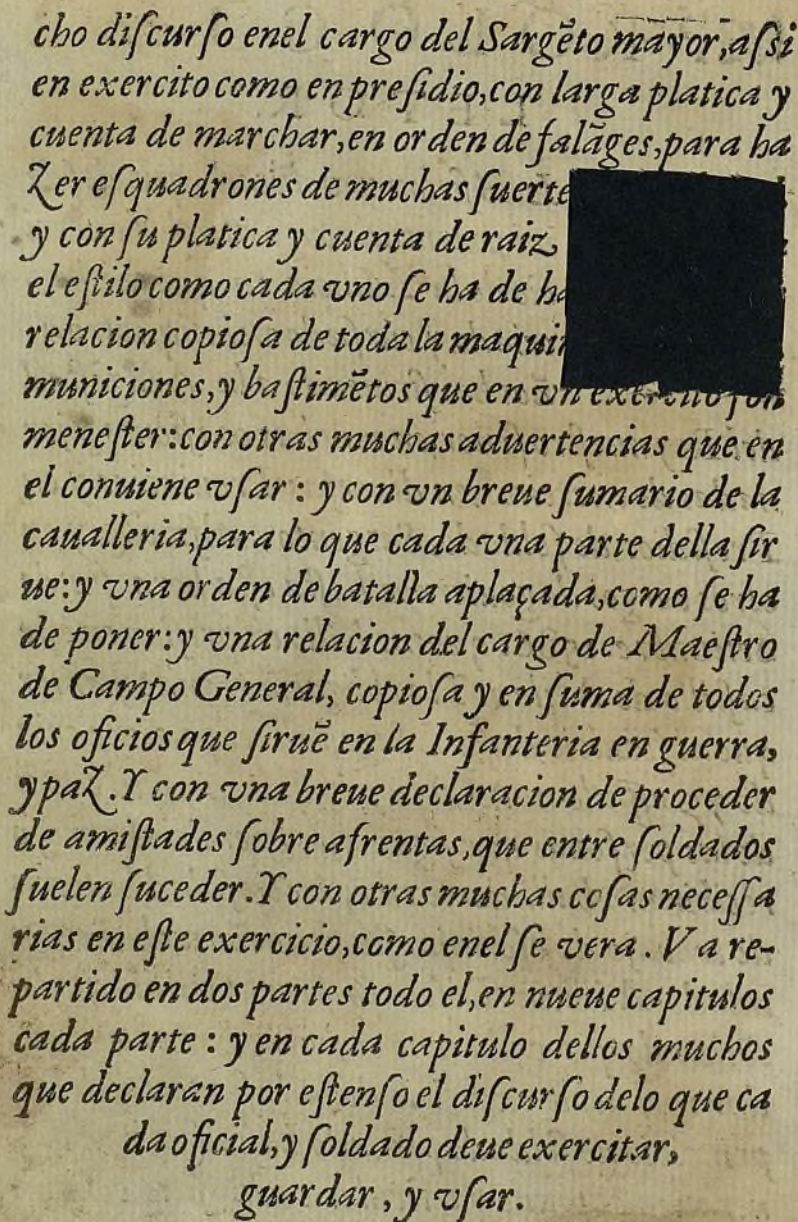 cho diſcurſo enel cargo del Sargẽto mayor, aſsi
en exercito como en preſidio, con larga platica y
cuenta de marchar, en orden de falãges, para ha
zer eſquadrones de muchas
y con ſu platica y cuenta de raiz,
el eſtilo como cada vno ſe ha de
relacion copioſa de toda la
municiones, y baſtimẽtos que en vn exercito ſon
meneſter: con otras muchas aduertencias que en
el conuiene vſar : y con vn breue ſumario de la
caualleria, para lo que cada vna parte della ſir
ue: y vna orden de batalla aplaçada, como ſe ha
de poner: y vna relacion del cargo de Maeſtro
de Campo General, copioſa y en ſuma de todos
los oficios que ſiruẽ en la Infanteria en guerra,
y paz. Y con vna breue declaracion de proceder
de amiſtades ſobre afrentas, que entre ſoldados
ſuelen ſuceder. Y con otras muchas coſas neceſſa
rias en eſte exercicio, como enel ſe vera. Va re-
partido en dos partes todo el, en nueue capitulos
cada parte : y en cada capitulo dellos muchos
que declaran por eſtenſo el diſcurſo delo que ca
da oficial, y ſoldado deue exercitar,
guardar, y vſar.